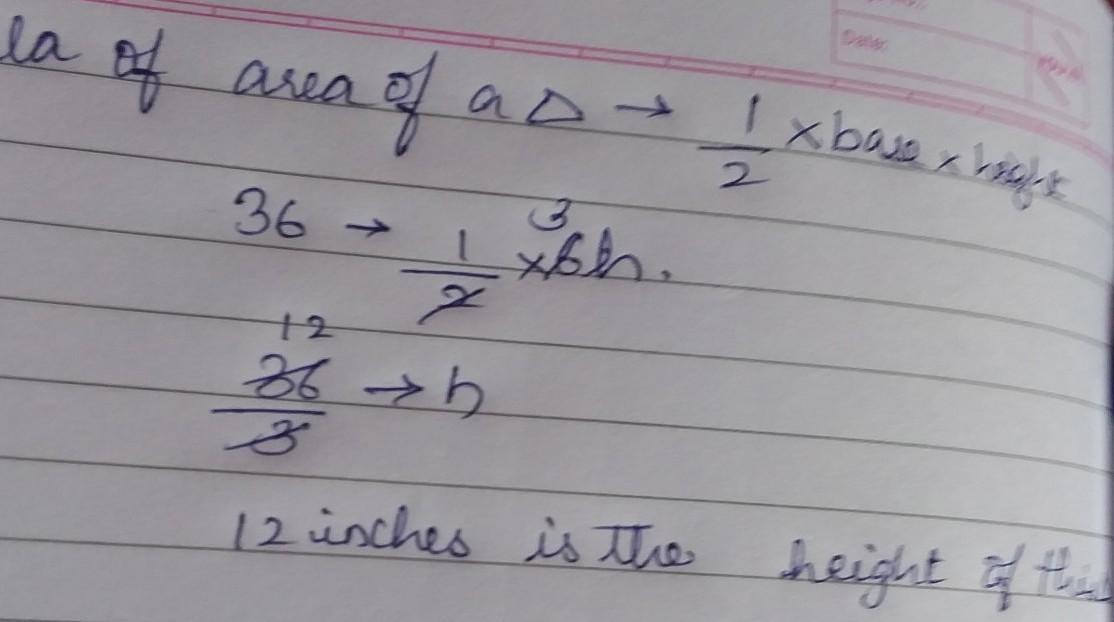 la of area of a △ → 1/2 × base × height
36 → 1/2 × 6h. 3
12
36/3 → h
12 inches is the height of this
Date: